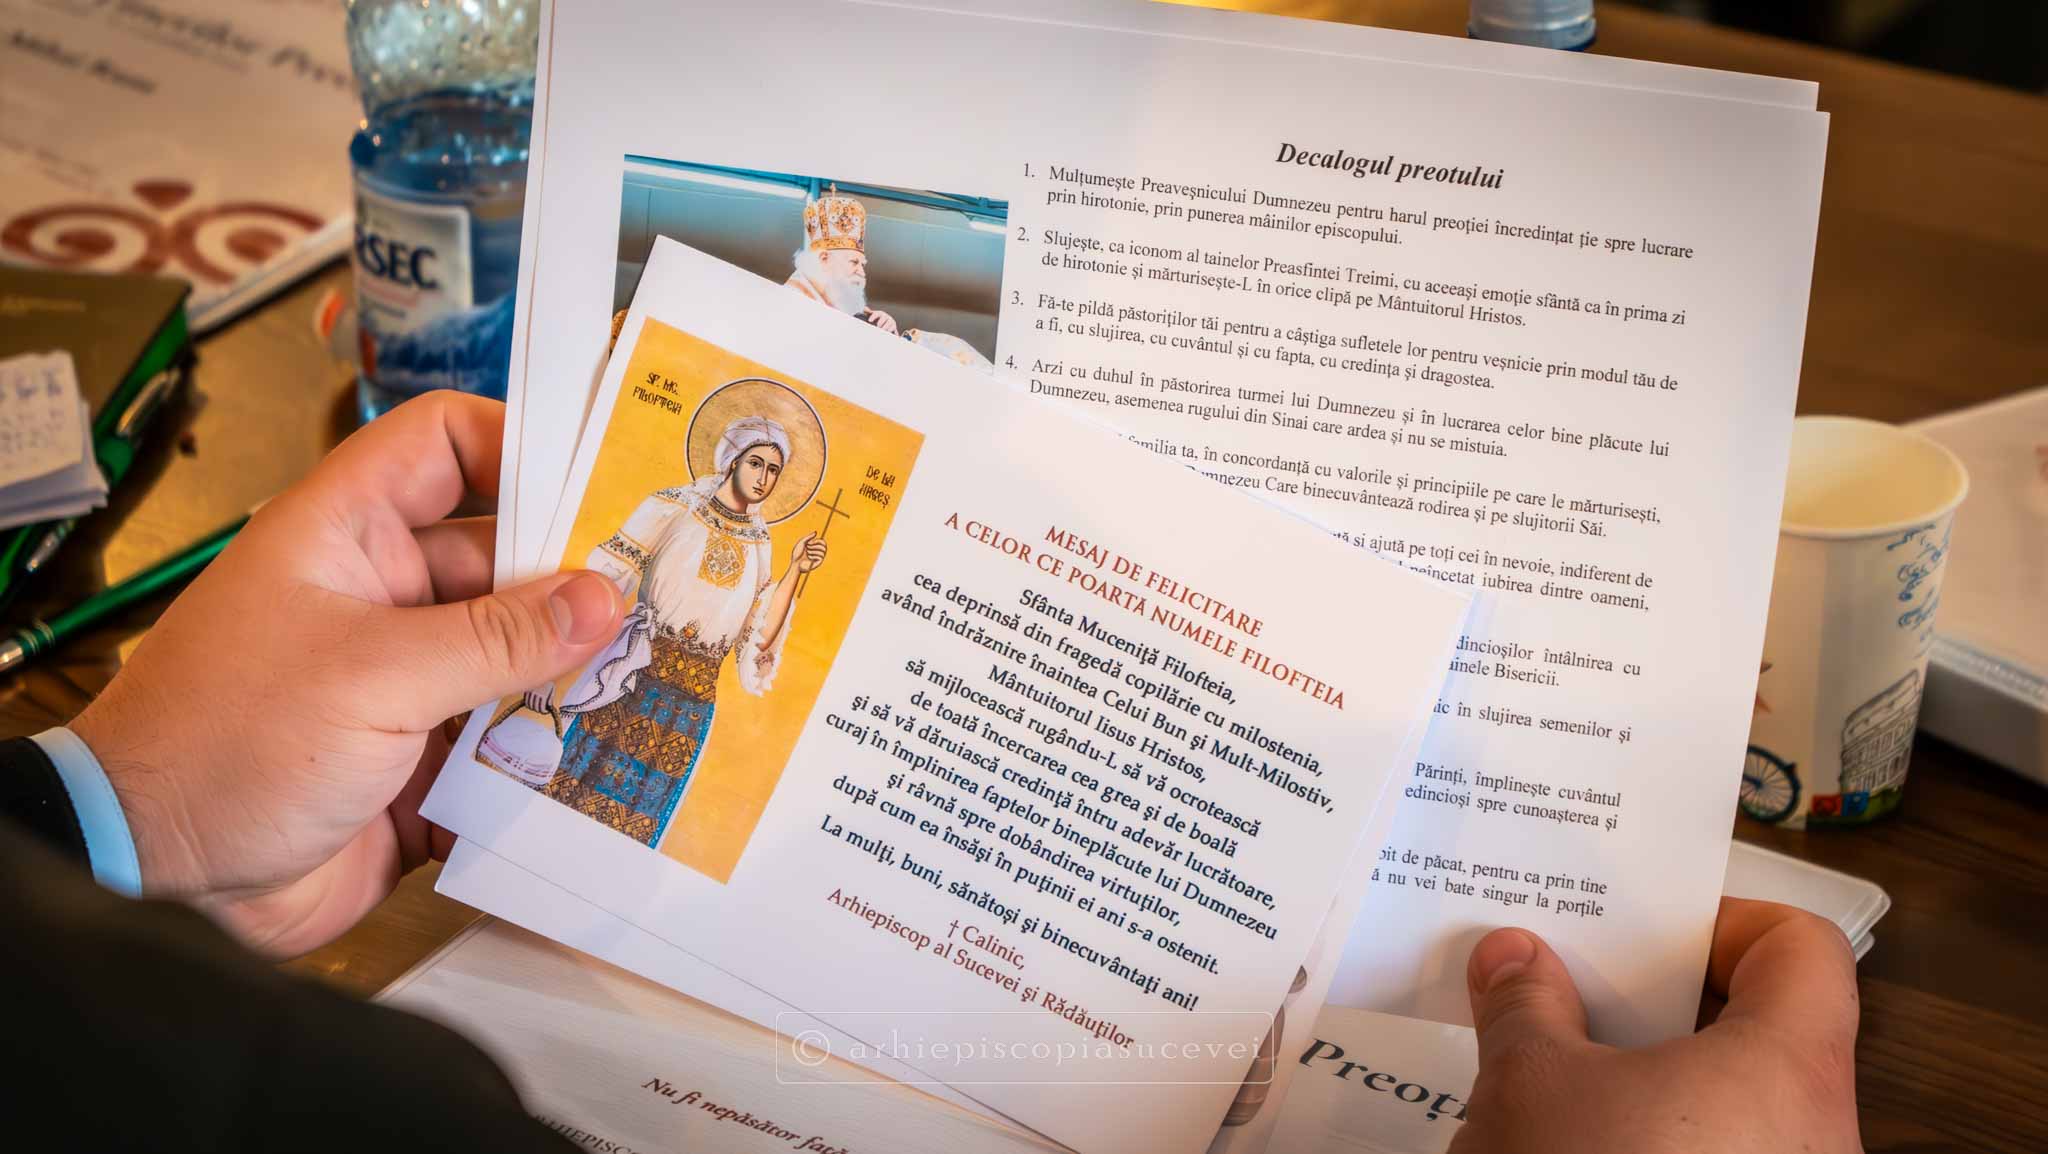 Decalogul preotului
1. Mulțumește Preaveșnicului Dumnezeu pentru harul preoției încredințat ție spre lucrare
prin hirotonie, prin punerea mâinilor episcopului.
2. Slujește, ca iconom al tainelor Preasfintei Treimi, cu aceeași emoție sfântă ca în prima zi
de hirotonie și mărturisește-L în orice clipă pe Mântuitorul Hristos.
3. Fă-te pildă păstoriților tăi pentru a câștiga sufletele lor pentru veșnicie prin modul tău de
a fi, cu slujirea, cu cuvântul și cu fapta, cu credința și dragostea.
4. Arzi cu duhul în păstorirea turmei lui Dumnezeu și în lucrarea celor bine plăcute lui
Dumnezeu, asemenea rugului din Sinai care ardea și nu se mistuia.
familia ta, în concordanță cu valorile și principiile pe care le mărturisești,
Dumnezeu Care binecuvântează rodirea și pe slujitorii Săi.
si ajută pe toți cei în nevoie, indiferent de
neîncetat iubirea dintre oameni,
întâlnirea cu
Bisericii.
în slujirea semenilor și
Părinți, împlinește cuvântul
spre cunoașterea și
de păcat, pentru ca prin tine
nu vei bate singur la porțile
SF. MC.
FILOFTEIA
DE LA
ARGEȘ
MESAJ DE FELICITARE
A CELOR CE POARTĂ NUMELE FILOFTEIA
Sfânta Muceniţă Filofteia,
cea deprinsă din fragedă copilărie cu milostenia,
având îndrăznire înaintea Celui Bun şi Mult-Milostiv,
Mântuitorul Iisus Hristos,
să mijlocească rugându-L să vă ocrotească
de toată încercarea cea grea şi de boală
şi să vă dăruiască credinţă întru adevăr lucrătoare,
curaj în împlinirea faptelor bineplăcute lui Dumnezeu
şi râvnă spre dobândirea virtuţilor,
după cum ea însăşi în puţinii ei ani s-a ostenit.
La mulţi, buni, sănătoşi şi binecuvântaţi ani!
† Calinic,
Arhiepiscop al Sucevei şi Rădăuţilor
© arhiepiscopiasucevei
Nu fi nepăsător față